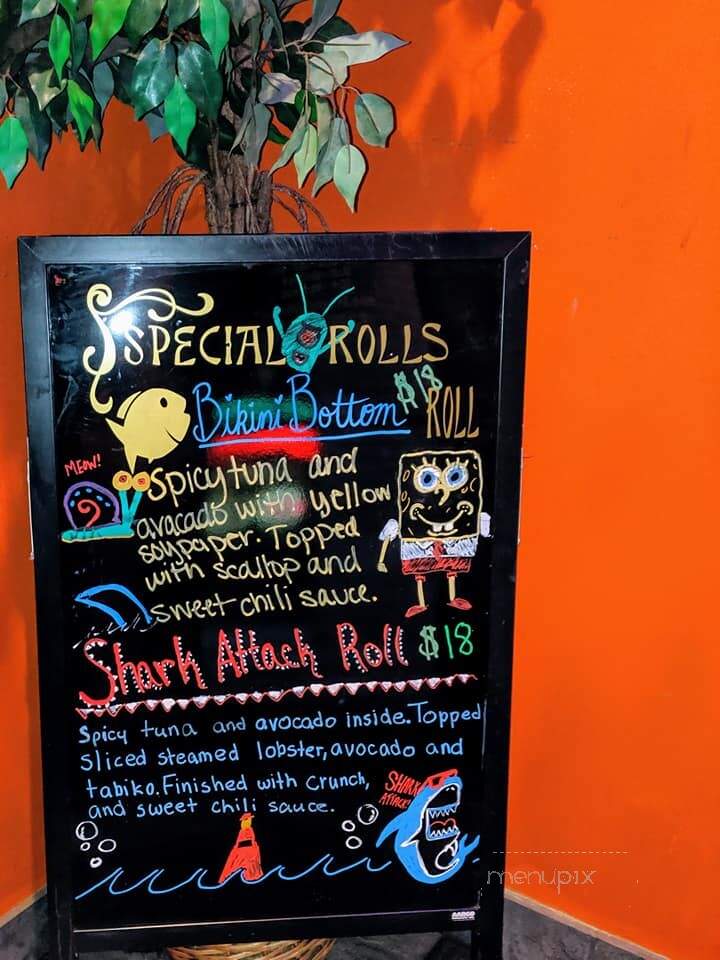 SPECIAL ROLLS
Bikini Bottom ROLL $18
MEOW!
Spicy tuna and
avacado with yellow
soypaper. Topped
with scallop and
sweet chili sauce.
Shark Attack Roll $18
Spicy tuna and avocado inside. Topped
sliced steamed lobster, avocado and
tabiko. Finished with crunch,
and sweet chili sauce.
SHARK
ATTACK!
menupix